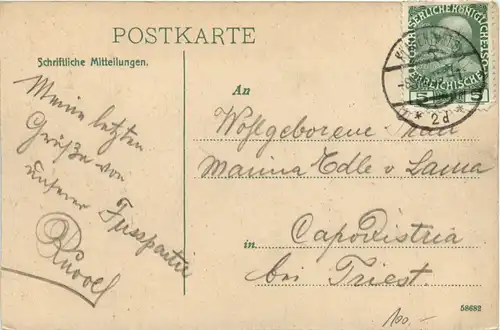 POSTKARTE
Schriftliche Mitteilungen.
Meine letzten
Grüße von
unserer Fusspartie
An
Wohlgeborene Frau
Marina Edle v Lama
in Capodistria
bei Triest.
58682
100.-
KAISERLICHE KÖNIGLICHE
ÖSTERREICHISCHE
5 5
* 2d *